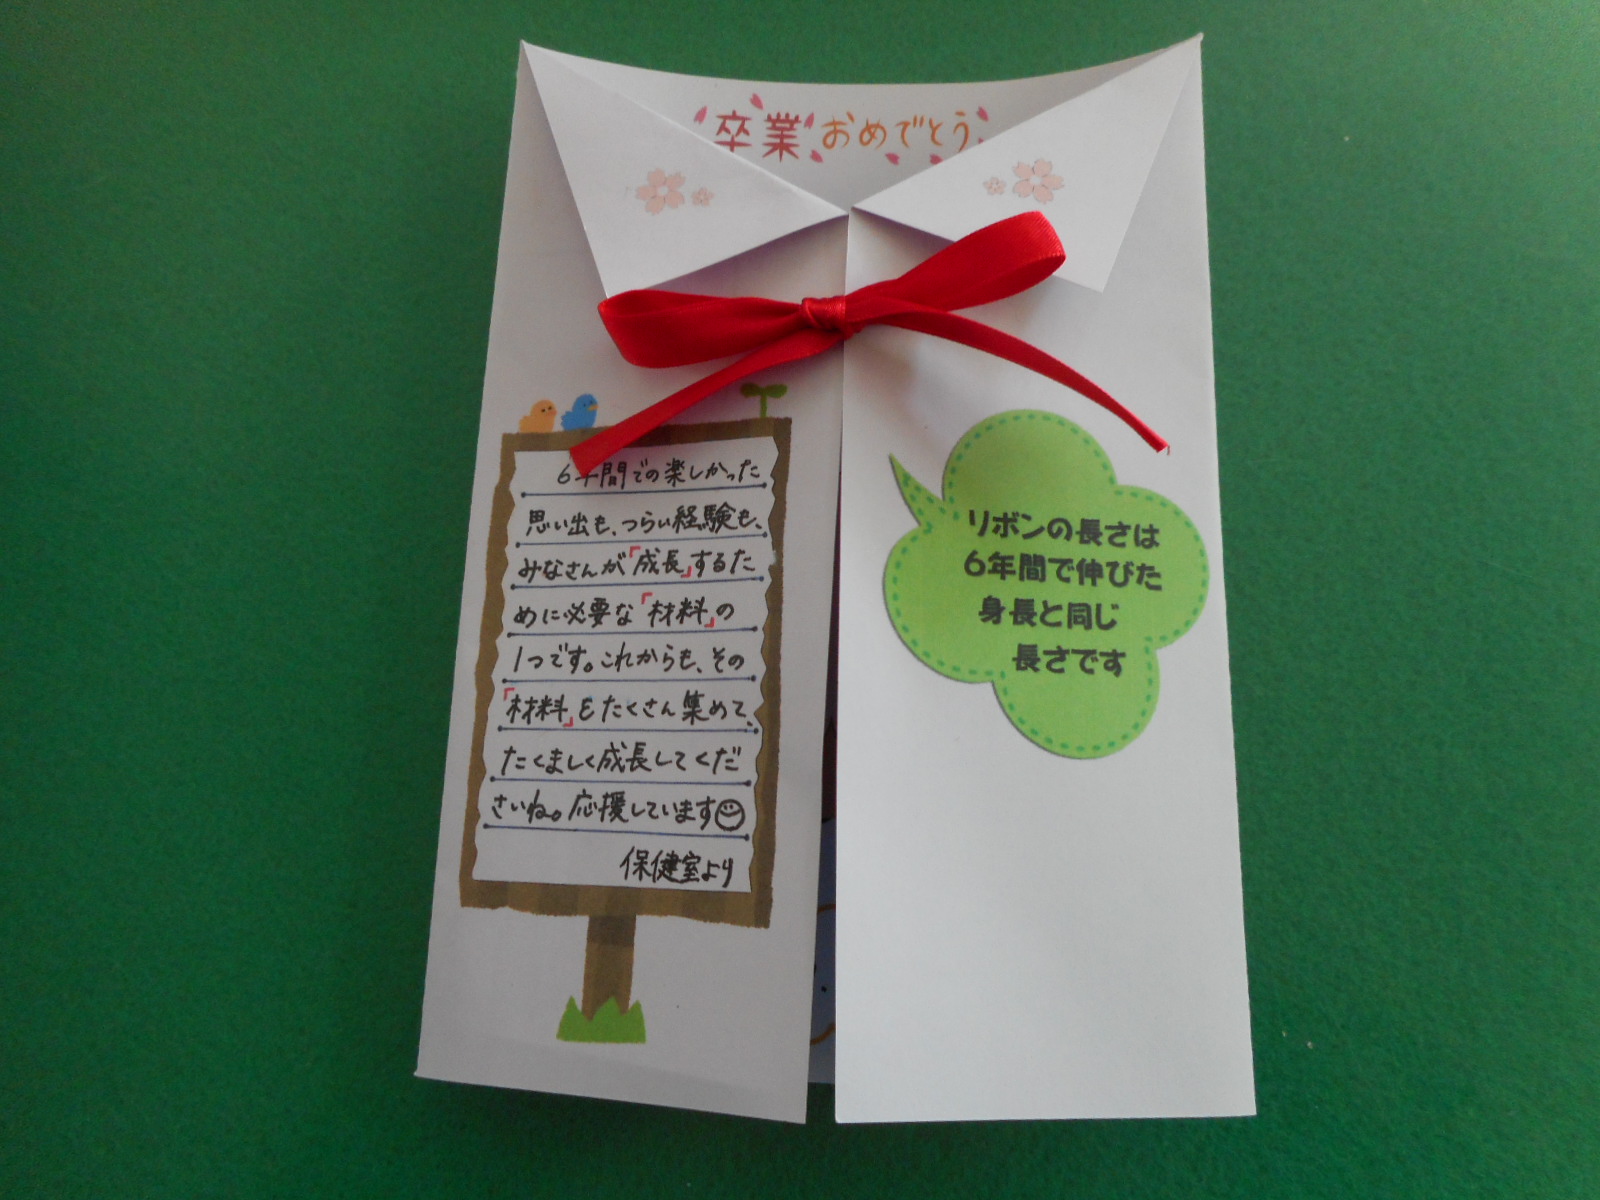 卒業おめでとう
6年間での楽しかった
思い出も、つらい経験も、
みなさんが「成長」するた
めに必要な「材料」の
1つです。これからも、その
「材料」をたくさん集めて、
たくましく成長してくだ
さいね。応援しています
保健室より
リボンの長さは
6年間で伸びた
身長と同じ
長さです